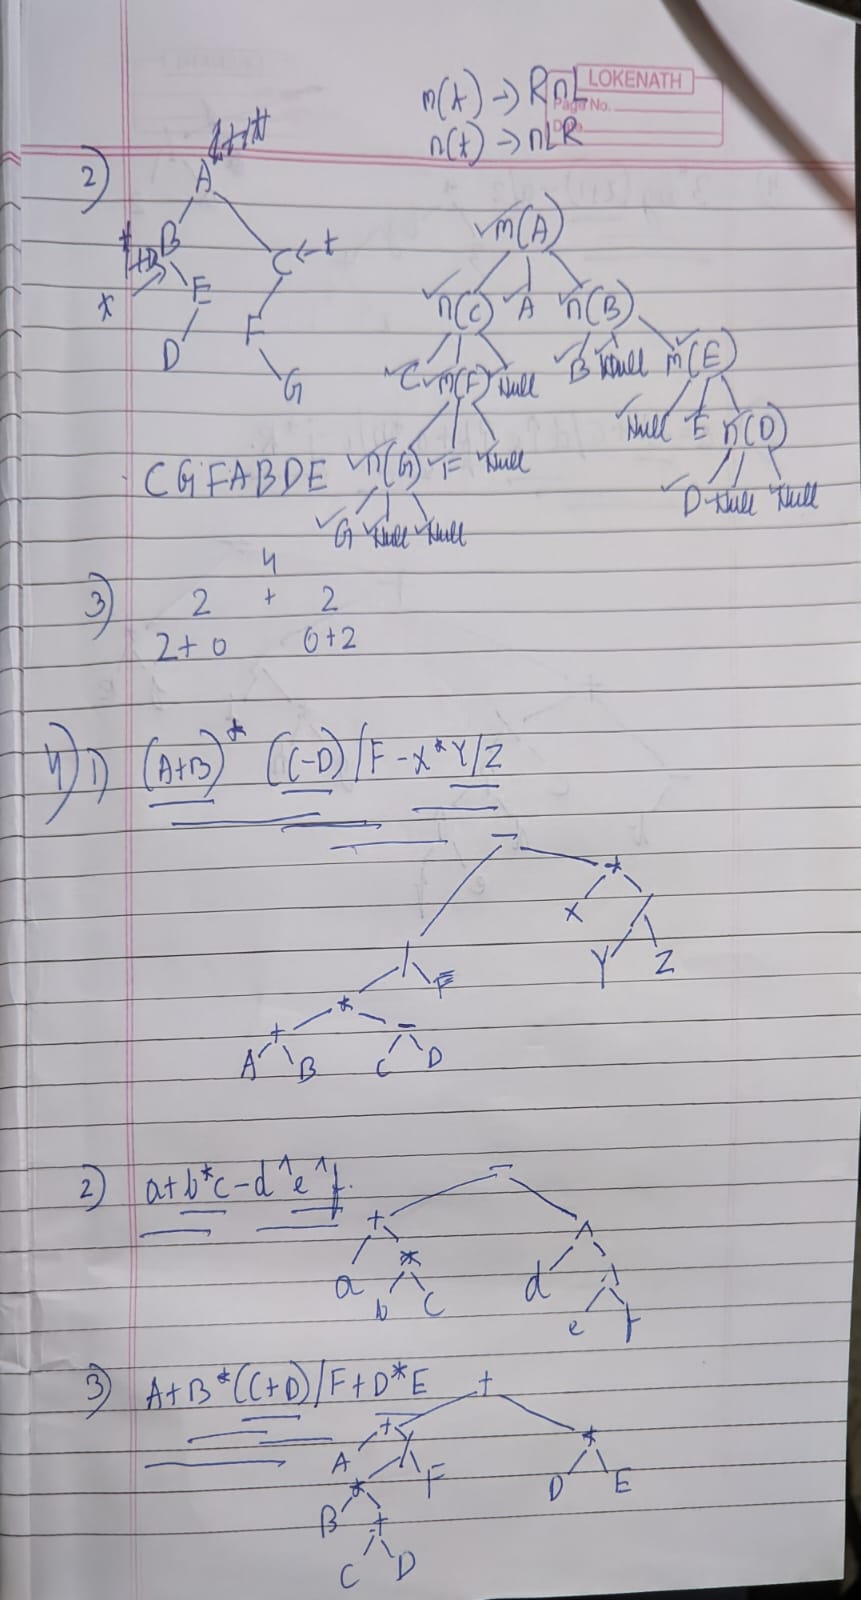 LOKENATH
Page No.
m(t) → RnL
n(t) → nLR
2)
A
B
C ← t
t
E
F
D
G
m(A)
n(C) A n(B)
C m(F) Null B Null m(E)
n(G) F Null Null E n(D)
G Null Null D Null Null
CGFABDE
4
3) 2 + 2
2+0 0+2
4) 1) (A+B)* (C-D)/F-X*Y/Z
-
*
X /
Y Z
/
* F
+ -
A B C D
2) a+b*c-d^e^f.
-
+ ^
a * d ^
b c e f
3) A+B*(C+D)/F+D*E
+
+ *
A / D E
* F
B +
C D